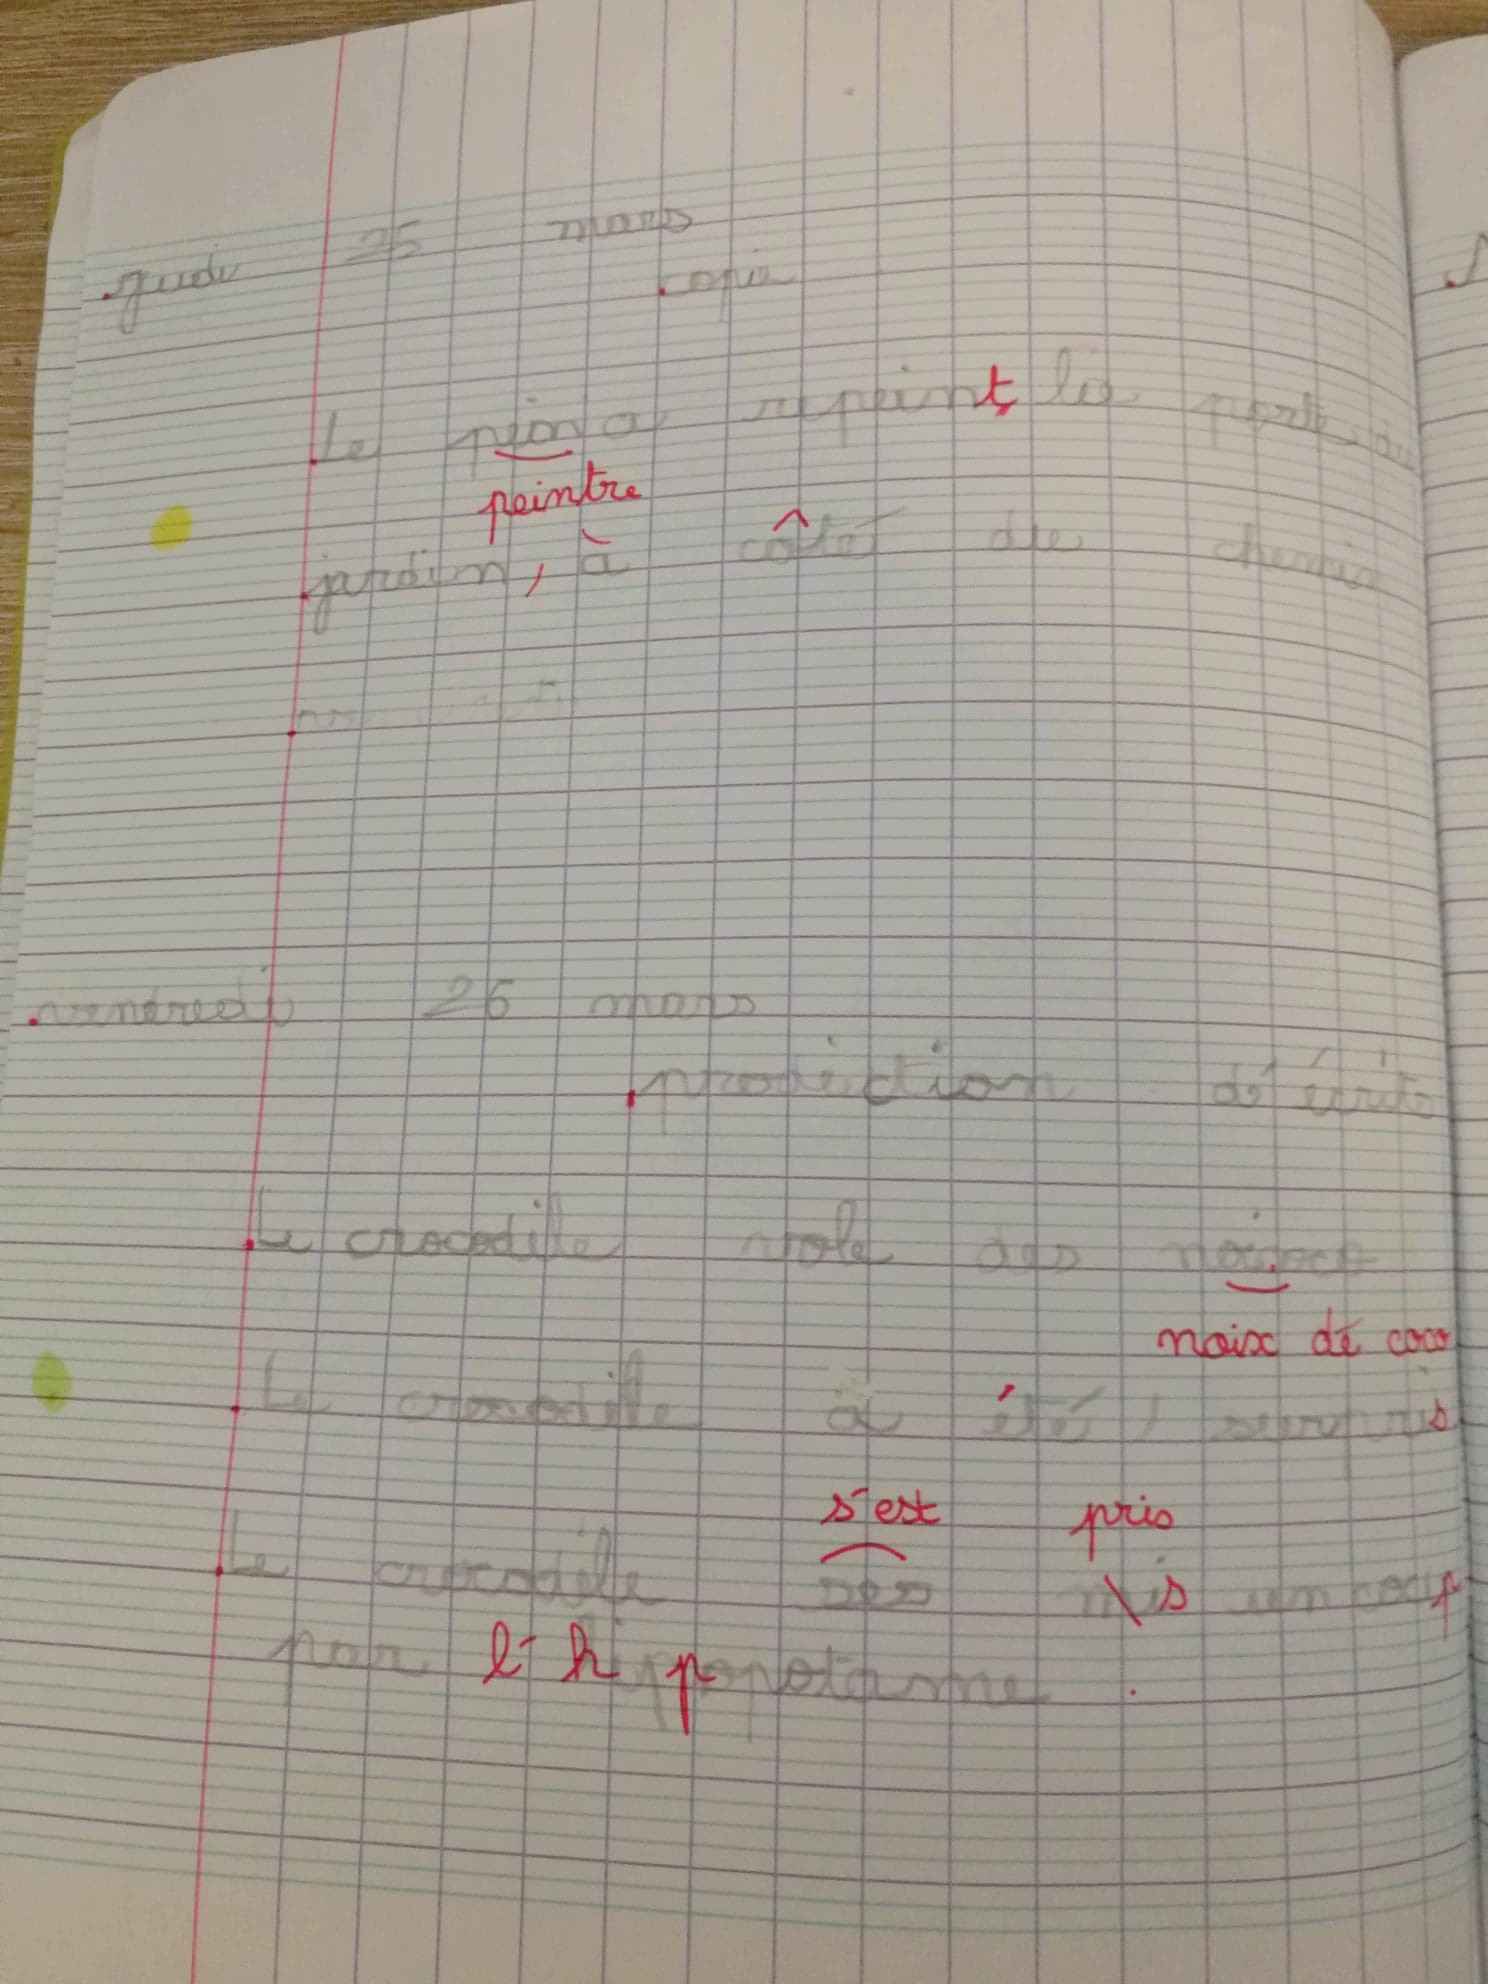 jeudi 25 mars
copie
Le a repeint la
peintre
jardin, à côté de chemin
vendredi 26 mars
d'écrits
Le crocodile vole des
noix de coco
Le crocodile a été surpris
s'est pris
Le crocodile mis un
par l'hippopotame.